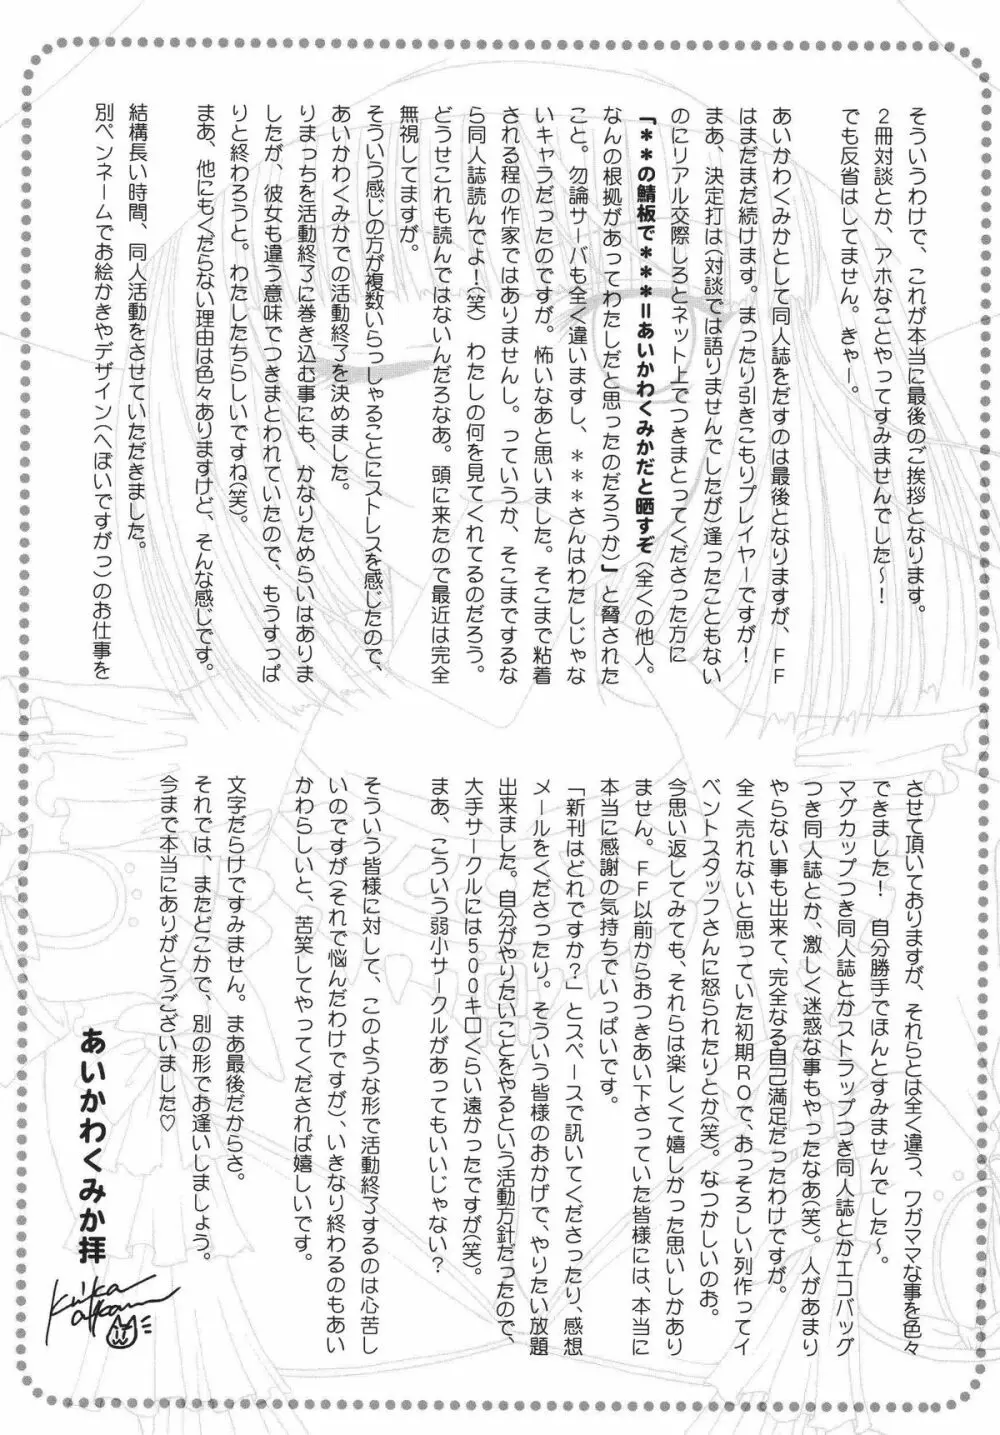 そういうわけで、これが本当に最後のご挨拶となります。
2冊対談とか、アホなことやってすみませんでした～！
でも反省はしてません。きゃー。
あいかわくみかとして同人誌をだすのは最後となりますが、FF
はまだまだ続けます。まったり引きこもりプレイヤーですが！
まあ、決定打は(対談では語りませんでしたが)逢ったこともない
のにリアル交際しろとネット上でつきまとってくださった方に
「＊＊の鯖板で＊＊＊＝あいかわくみかだと晒すぞ(全くの他人。
なんの根拠があってわたしだと思ったのだろうか)」と脅された
こと。勿論サーバも全く違いますし、＊＊＊さんはわたしじゃな
いキャラだったのですが。怖いなあと思いました。そこまで粘着
される程の作家ではありませんし。っていうか、そこまでするな
ら同人誌読んでよ！(笑)　わたしの何を見てくれてるのだろう。
どうせこれも読んではないんだろなあ。頭に来たので最近は完全
無視してますが。
そういう感じの方が複数いらっしゃることにストレスを感じたので、
あいかわくみかでの活動終了を決めました。
りまっちを活動終了に巻き込む事にも、かなりためらいはありま
したが、彼女も違う意味でつきまとわれていたので、もうすっぱ
りと終わろうと。わたしたちらしいですね(笑)。
まあ、他にもくだらない理由は色々ありますけど、そんな感じです。
結構長い時間、同人活動をさせていただきました。
別ペンネームでお絵かきやデザイン(へぼいですがっ)のお仕事を
させて頂いておりますが、それらとは全く違う、ワガママな事を色々
できました！　自分勝手でほんとすみませんでした～。
マグカップつき同人誌とかストラップつき同人誌とかエコバッグ
つき同人誌とか、激しく迷惑な事もやったなあ(笑)。人があまり
やらない事も出来て、完全なる自己満足だったわけですが。
全く売れないと思っていた初期ROで、おっそろしい列作ってイ
ベントスタッフさんに怒られたりとか(笑)。なつかしいのお。
今思い返してみても、それらは楽しくて嬉しかった思いしかあり
ません。FF以前からおつきあい下さっていた皆様には、本当に
本当に感謝の気持ちでいっぱいです。
「新刊はどれですか？」とスペースで訊いてくださったり、感想
メールをくださったり。そういう皆様のおかげで、やりたい放題
出来ました。自分がやりたいことをやるという活動方針だったので、
大手サークルには500キロくらい遠かったですが(笑)。
まあ、こういう弱小サークルがあってもいいじゃない？
そういう皆様に対して、このような形で活動終了するのは心苦し
いのですが(それで悩んだわけですが)、いきなり終わるのもあい
かわらしいと、苦笑してやってくだされば嬉しいです。
文字だらけですみません。まあ最後だからさ。
それでは、またどこかで、別の形でお逢いしましょう。
今まで本当にありがとうございました♡
あいかわくみか拝